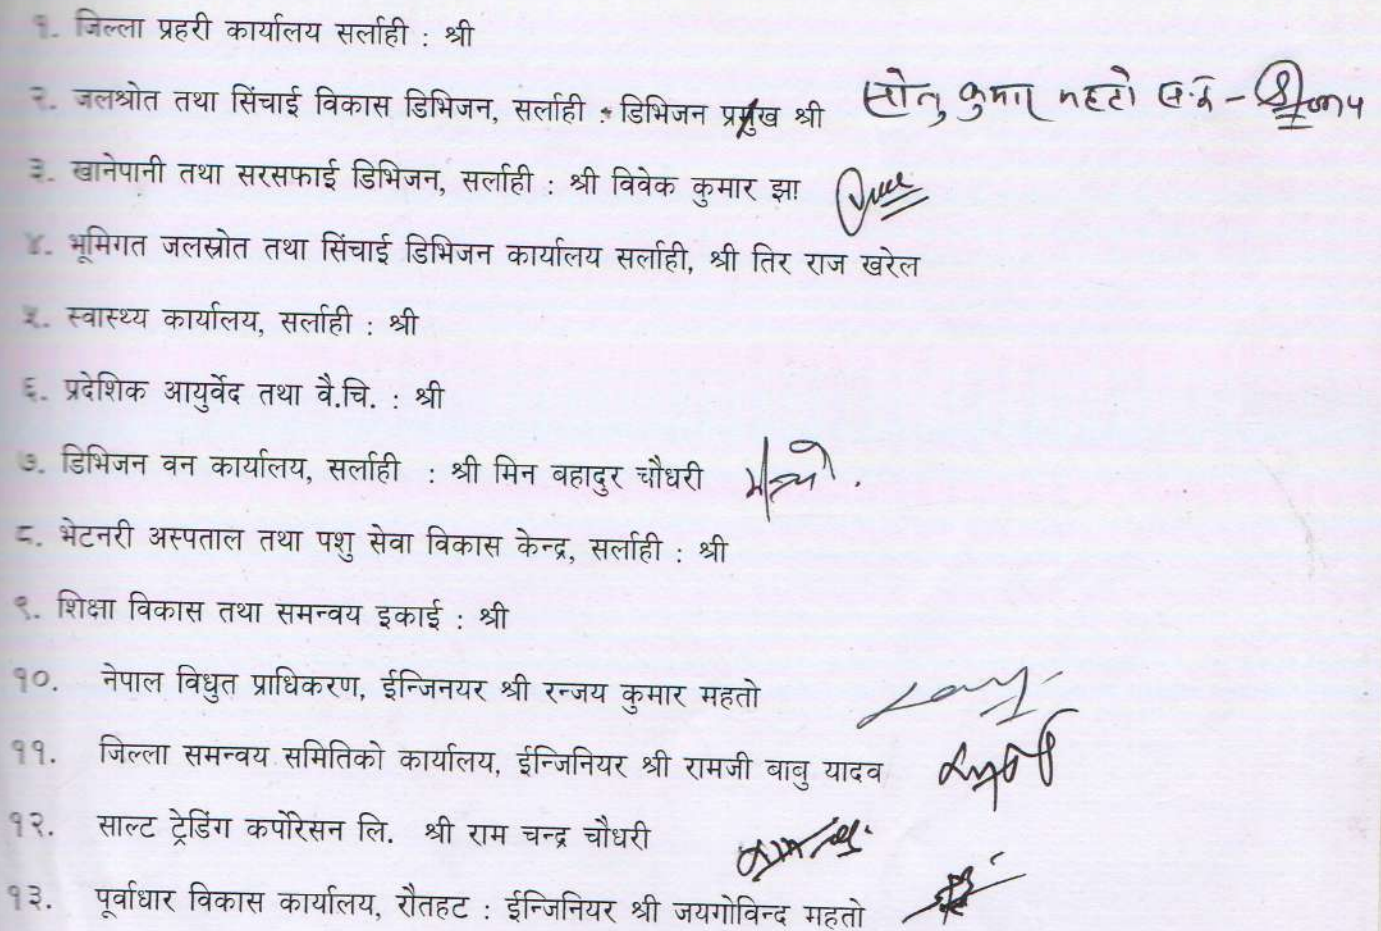 १. जिल्ला प्रहरी कार्यालय सर्लाही : श्री
२. जलश्रोत तथा सिंचाई विकास डिभिजन, सर्लाही : डिभिजन प्रमुख श्री सोनु कुमार महतो
३. खानेपानी तथा सरसफाई डिभिजन, सर्लाही : श्री विवेक कुमार झा
४. भूमिगत जलस्रोत तथा सिंचाई डिभिजन कार्यालय सर्लाही, श्री तिर राज खरेल
५. स्वास्थ्य कार्यालय, सर्लाही : श्री
६. प्रदेशिक आयुर्वेद तथा वै.चि. : श्री
७. डिभिजन वन कार्यालय, सर्लाही : श्री मिन बहादुर चौधरी
८. भेटनरी अस्पताल तथा पशु सेवा विकास केन्द्र, सर्लाही : श्री
९. शिक्षा विकास तथा समन्वय इकाई : श्री
१०. नेपाल विधुत प्राधिकरण, ईन्जिनयर श्री रन्जय कुमार महतो
११. जिल्ला समन्वय समितिको कार्यालय, ईन्जिनियर श्री रामजी बाबु यादव
१२. साल्ट ट्रेडिंग कर्पोरेसन लि. श्री राम चन्द्र चौधरी
१३. पूर्वाधार विकास कार्यालय, रौतहट : ईन्जिनियर श्री जयगोविन्द महतो